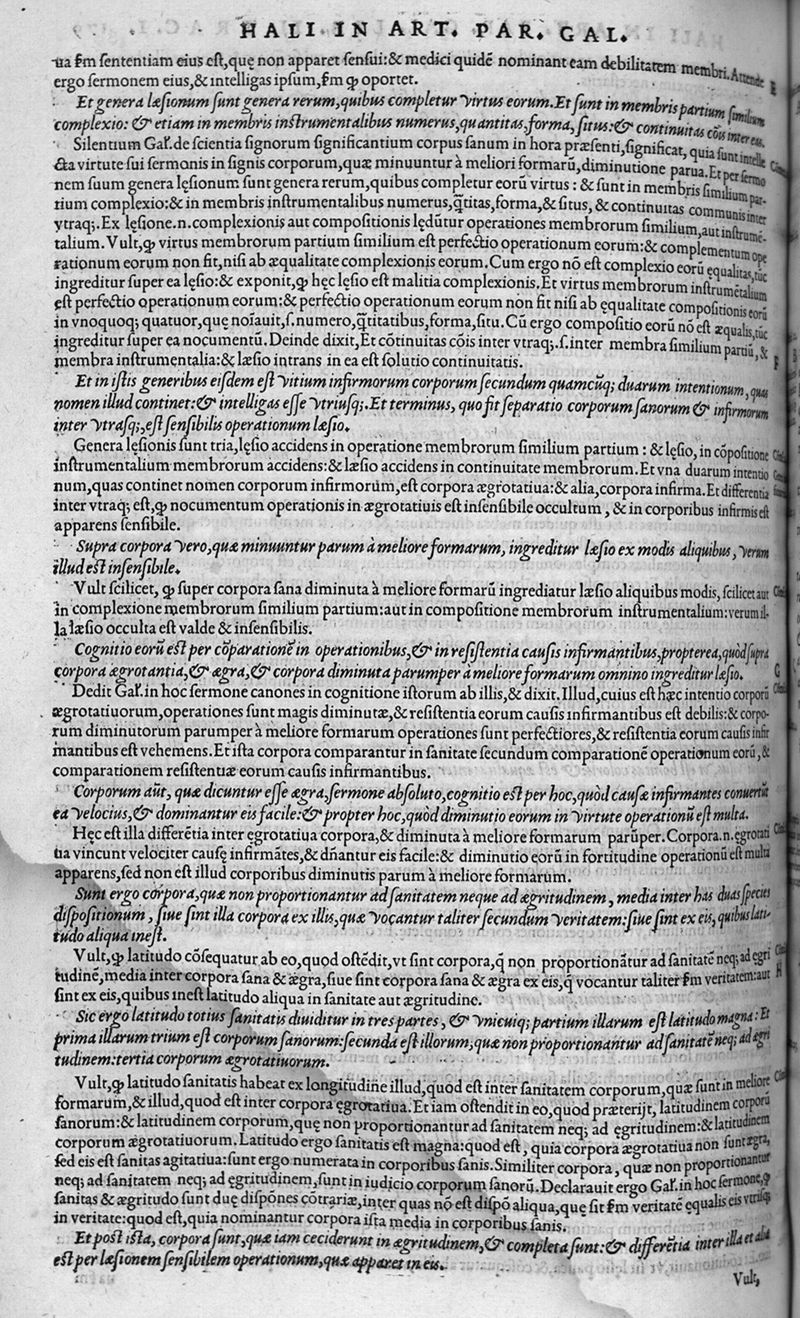 HALI IN ART. PAR. GAL.
ua ſm ſententiam eius eſt, quę non apparet ſenſui: & medici quidẽ nominant eam debilitatem membri. Attende
ergo ſermonem eius, & intelligas ipſum, ſm ꝙ oportet.
Et genera læſionum ſunt genera rerum, quibus completur virtus eorum. Et ſunt in membris partium ſimilium
complexio: & etiam in membris inſtrumentalibus numerus, quantitas, forma, ſitus: & continuitas cõis inter ea.
Silentium Gal. de ſcientia ſignorum ſignificantium corpus ſanum in hora præſenti, ſignificat, quia ſunt intelle
cta virtute ſui ſermonis in ſignis corporum, quæ minuuntur à meliori formarũ, diminutione parua. Et per ſermo
nem ſuum genera lęſionum ſunt genera rerum, quibus completur eorũ virtus: & ſunt in membris ſimilium par-
tium complexio: & in membris inſtrumentalibus numerus, q̃titas, forma, & ſitus, & continuitas communis inter
vtraq;. Ex lęſione .n. complexionis aut compoſitionis lędũtur operationes membrorum ſimilium, aut inſtrumẽ-
talium. Vult, ꝙ virtus membrorum partium ſimilium eſt perfectio operationum eorum: & complementum ope
rationum eorum non fit, niſi ab æqualitate complexionis eorum. Cum ergo nõ eſt complexio eorũ ęqualitas, tũc
ingreditur ſuper ea lęſio: & exponit, ꝙ hęc lęſio eſt malitia complexionis. Et virtus membrorum inſtrumẽtalium
eſt perfectio operationum eorum: & perfectio operationum eorum non fit niſi ab ęqualitate compoſitionis eorũ
in vnoquoq; quatuor, quę noĩauit, ſ. numero, q̃titatibus, forma, ſitu. Cũ ergo compoſitio eorũ nõ eſt æqualis, tũc
ingreditur ſuper ea nocumentũ. Deinde dixit, Et cõtinuitas cõis inter vtraq;. ſ. inter membra ſimilium partiũ, &
membra inſtrumentalia: & læſio intrans in ea eſt ſolutio continuitatis.
Et in iſtis generibus eiſdem eſt vitium infirmorum corporum ſecundum quamcũq; duarum intentionum, quas
nomen illud continet: & intelligas eſſe vtriuſq;. Et terminus, quo fit ſeparatio corporum ſanorum & infirmorum
inter vtraſq;, eſt ſenſibilis operationum læſio.
Genera lęſionis ſunt tria, lęſio accidens in operatione membrorum ſimilium partium: & lęſio, in cõpoſitione
inſtrumentalium membrorum accidens: & læſio accidens in continuitate membrorum. Et vna duarum intentio
num, quas continet nomen corporum infirmorum, eſt corpora ægrotatiua: & alia, corpora infirma. Et differentia
inter vtraq; eſt, ꝙ nocumentum operationis in ægrotatiuis eſt inſenſibile occultum, & in corporibus infirmis eſt
apparens ſenſibile.
Supra corpora vero, quæ minuuntur parum à meliore formarum, ingreditur læſio ex modis aliquibus, verum
illud eſt inſenſibile.
Vult ſcilicet, ꝙ ſuper corpora ſana diminuta à meliore formarũ ingrediatur læſio aliquibus modis, ſcilicet aut
in complexione membrorum ſimilium partium: aut in compoſitione membrorum inſtrumentalium: verum il-
la læſio occulta eſt valde & inſenſibilis.
Cognitio eorũ eſt per cõparationẽ in operationibus, & in reſiſtentia cauſis infirmantibus. propterea, quòd ſupra
corpora ægrotantia, & ægra, & corpora diminuta parumper à meliore formarum omnino ingreditur læſio.
Dedit Gal. in hoc ſermone canones in cognitione iſtorum ab illis, & dixit. Illud, cuius eſt hæc intentio corporũ
ægrotatiuorum, operationes ſunt magis diminutæ, & reſiſtentia eorum cauſis infirmantibus eſt debilis: & corpo-
rum diminutorum parumper à meliore formarum operationes ſunt perfectiores, & reſiſtentia eorum cauſis infir
mantibus eſt vehemens. Et iſta corpora comparantur in ſanitate ſecundum comparationẽ operationum eorũ, &
comparationem reſiſtentiæ eorum cauſis infirmantibus.
Corporum aũt, quæ dicuntur eſſe ægra, ſermone abſoluto, cognitio eſt per hoc, quòd cauſæ infirmantes conuertũt
ea velocius, & dominantur eis facile: & propter hoc, quòd diminutio eorum in virtute operationũ eſt multa.
Hęc eſt illa differẽtia inter ęgrotatiua corpora, & diminuta à meliore formarum parũper. Corpora .n. ęgrotati
ua vincunt velociter cauſę infirmãtes, & dñantur eis facile: & diminutio eorũ in fortitudine operationũ eſt multa
apparens, ſed non eſt illud corporibus diminutis parum à meliore formarum.
Sunt ergo corpora, quæ non proportionantur ad ſanitatem neque ad ægritudinem, media inter has duas ſpecies
diſpoſitionum, ſiue ſint illa corpora ex illis, quæ vocantur taliter ſecundum veritatem: ſiue ſint ex eis, quibus lati-
tudo aliqua ineſt.
Vult, ꝙ latitudo cõſequatur ab eo, quod oſtẽdit, vt ſint corpora, q̃ non proportionãtur ad ſanitatẽ neq; ad ęgri
tudinẽ, media inter corpora ſana & ægra, ſiue ſint corpora ſana & ægra ex eis, q̃ vocantur taliter ſm veritatem: aut
ſint ex eis, quibus ineſt latitudo aliqua in ſanitate aut ægritudine.
Sic ergo latitudo totius ſanitatis diuiditur in tres partes, & vnicuiq; partium illarum eſt latitudo magna: Et
prima illarum trium eſt corporum ſanorum: ſecunda eſt illorum, quæ non proportionantur ad ſanitatẽ neq; ad ægri
tudinem: tertia corporum ægrotatiuorum.
Vult, ꝙ latitudo ſanitatis habeat ex longitudine illud, quod eſt inter ſanitatem corporum, quæ ſunt in meliore
formarum, & illud, quod eſt inter corpora ęgrotatiua. Et iam oſtendit in eo, quod præterijt, latitudinem corporũ
ſanorum: & latitudinem corporum, quę non proportionantur ad ſanitatem neq; ad ęgritudinem: & latitudinem
corporum ægrotatiuorum. Latitudo ergo ſanitatis eſt magna: quod eſt, quia corpora ægrotatiua non ſunt ægra,
ſed eis eſt ſanitas agitatiua: ſunt ergo numerata in corporibus ſanis. Similiter corpora, quæ non proportionantur
neq; ad ſanitatem neq; ad ęgritudinem, ſunt in iudicio corporum ſanorũ. Declarauit ergo Gal. in hoc ſermone, ꝙ
ſanitas & ægritudo ſunt duę diſpõnes cõtrariæ, inter quas nõ eſt diſpõ aliqua, que ſit ſm veritatẽ ęqualis eis vtriſq;
in veritate: quod eſt, quia nominantur corpora iſta media in corporibus ſanis.
Et poſt iſta, corpora ſunt, quæ iam ceciderunt in ægritudinem, & completa ſunt: & differẽtia inter illa et alia
eſt per læſionem ſenſibilem operationum, quæ apparet in eis.
Vult,